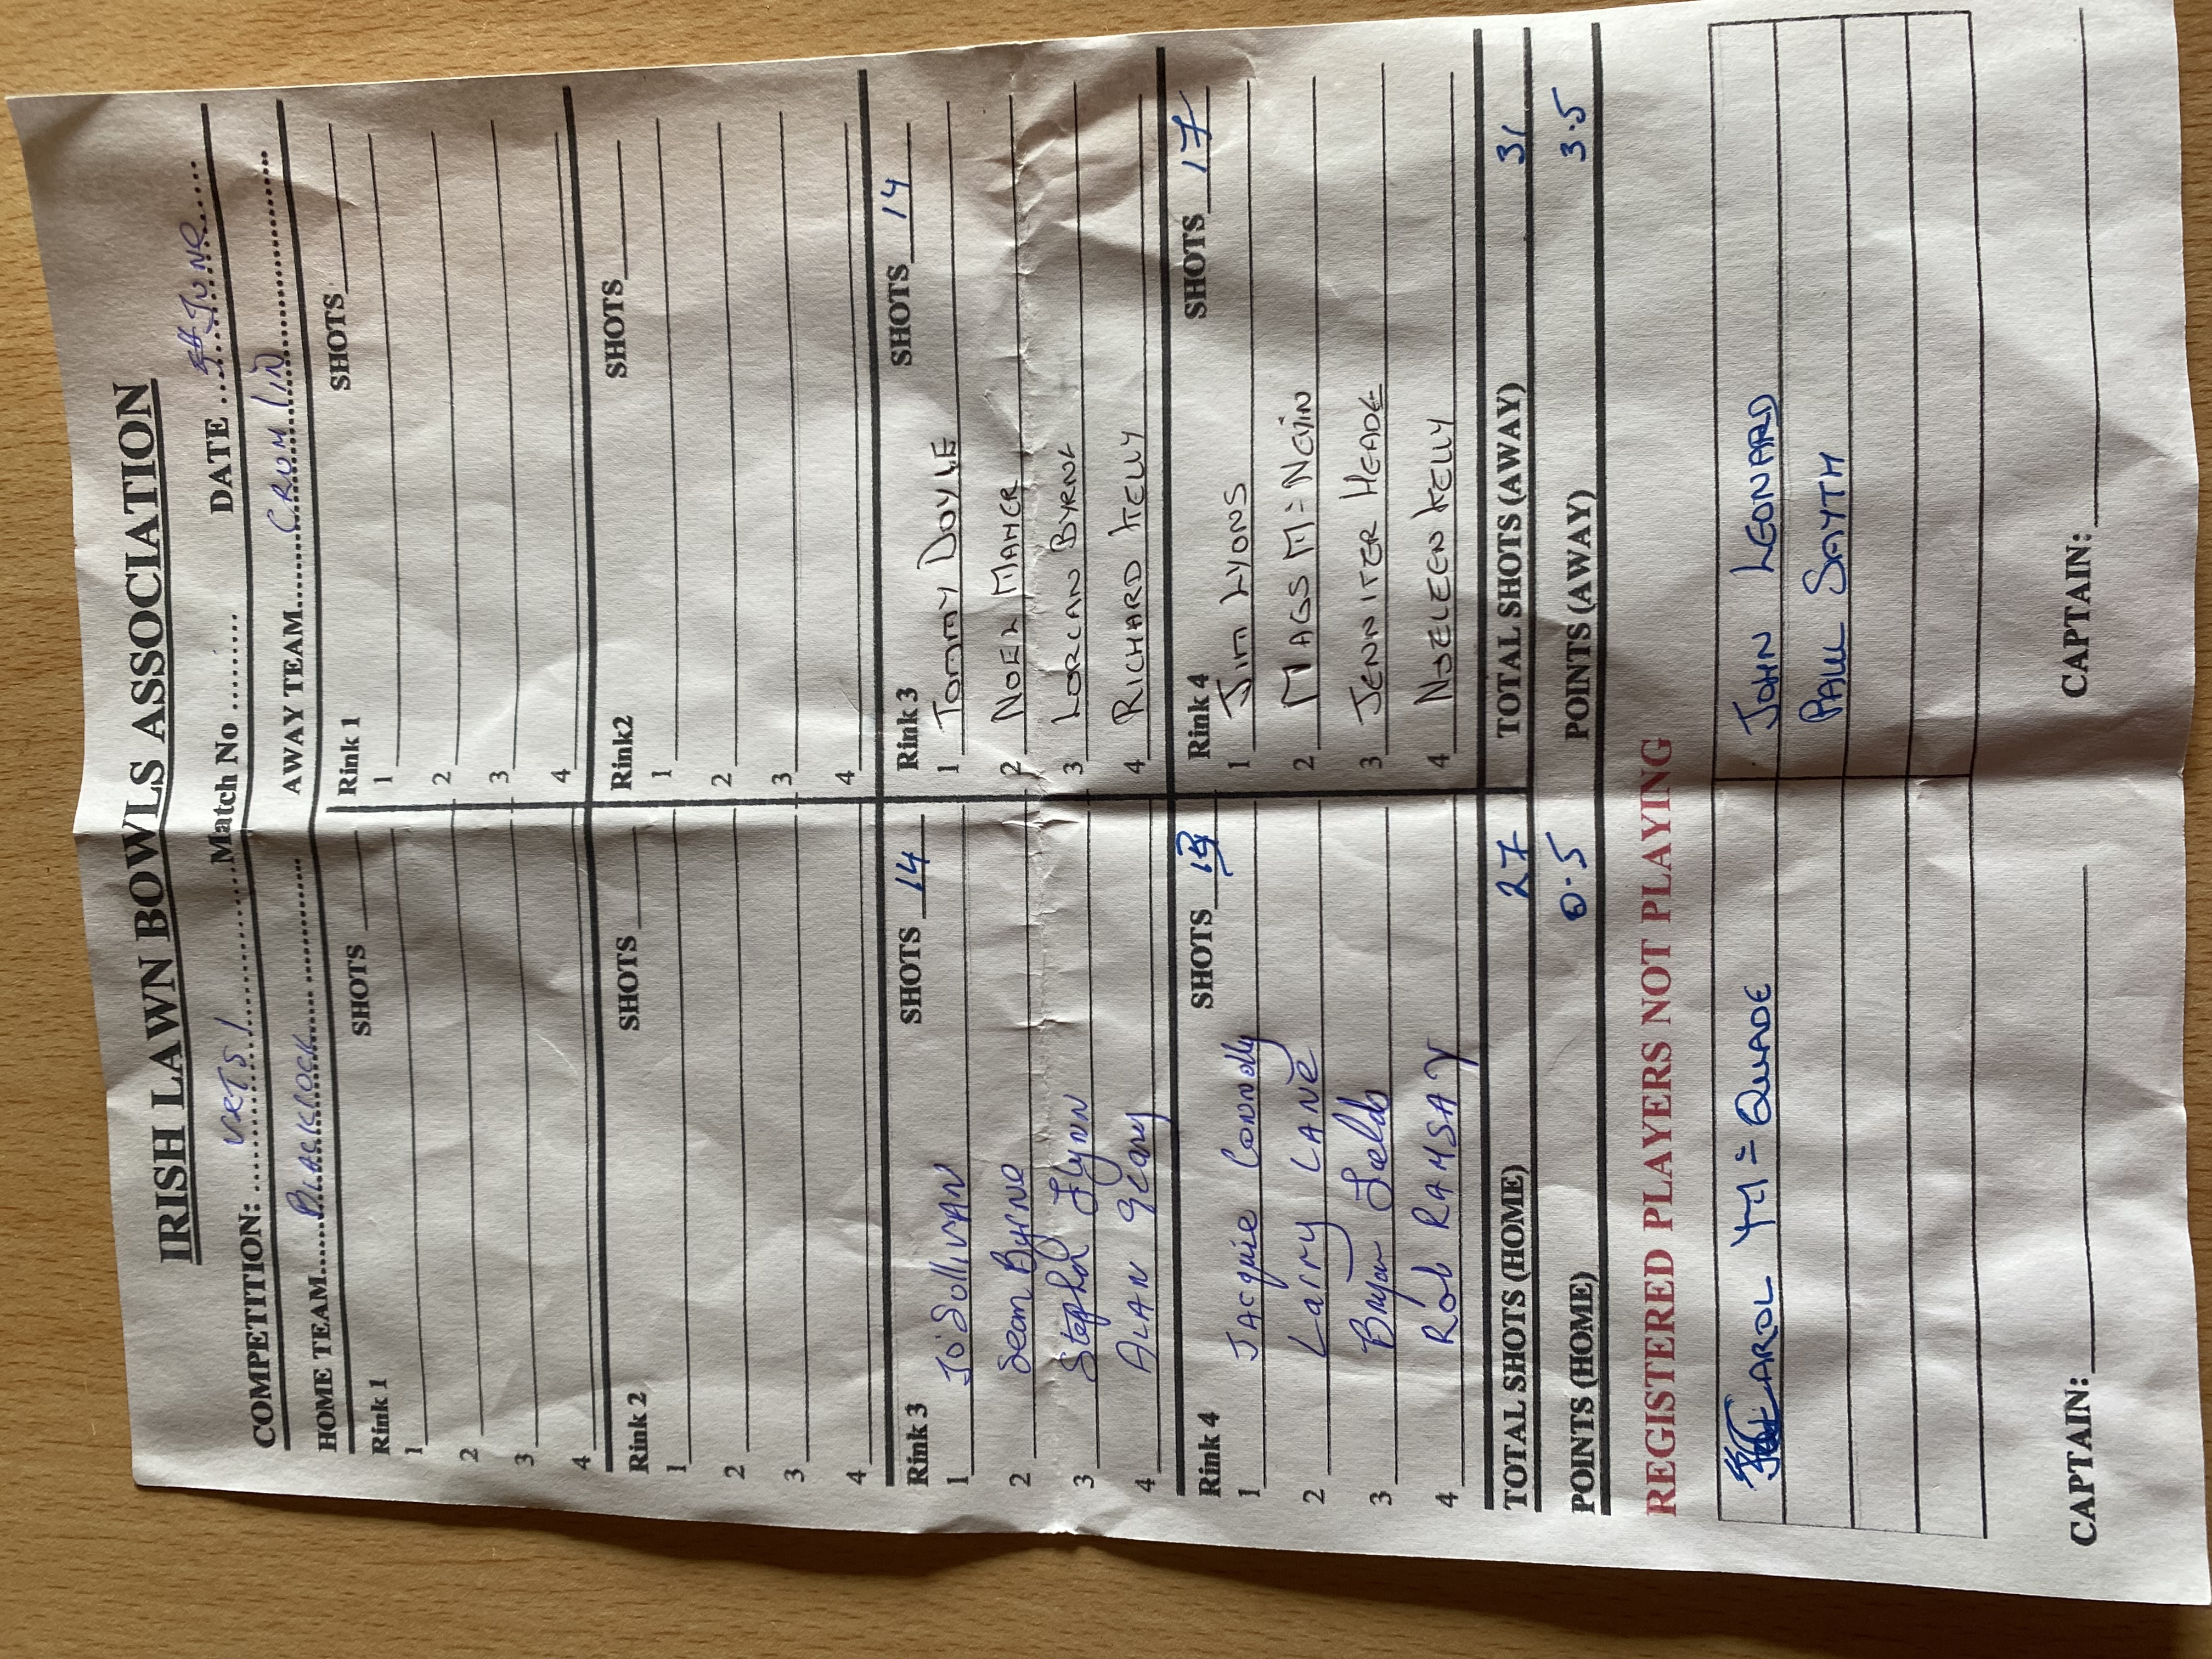 IRISH LAWN BOWLS ASSOCIATION
COMPETITION: VETS 1 Match No DATE JUNE
HOME TEAM BLACKROCK AWAY TEAM CRUMLIN
Rink 1 SHOTS Rink 1 SHOTS
1 1
2 2
3 3
4 4
Rink 2 SHOTS Rink2 SHOTS
1 1
2 2
3 3
4 4
Rink 3 SHOTS 14 Rink 3 SHOTS 14
1 J O'Sullivan 1 TOMMY DOYLE
2 Sean Byrne 2 NOEL MAHER
3 Stephen Flynn 3 LORCAN BYRNE
4 ALAN Geary 4 RICHARD KELLY
Rink 4 SHOTS Rink 4 SHOTS 17
1 JACquie Connolly 1 JIM LYONS
2 Larry LANE 2 MAGS Mc NEVIN
3 Bryan Fields 3 JENNIFER HEADE
4 Rob RAMSAY 4 NOELEEN KELLY
TOTAL SHOTS (HOME) 27 TOTAL SHOTS (AWAY) 31
POINTS (HOME) 0.5 POINTS (AWAY) 3.5
REGISTERED PLAYERS NOT PLAYING
CAROL Mc QUADE JOHN LEONARD
PAUL SMYTH
CAPTAIN: CAPTAIN: